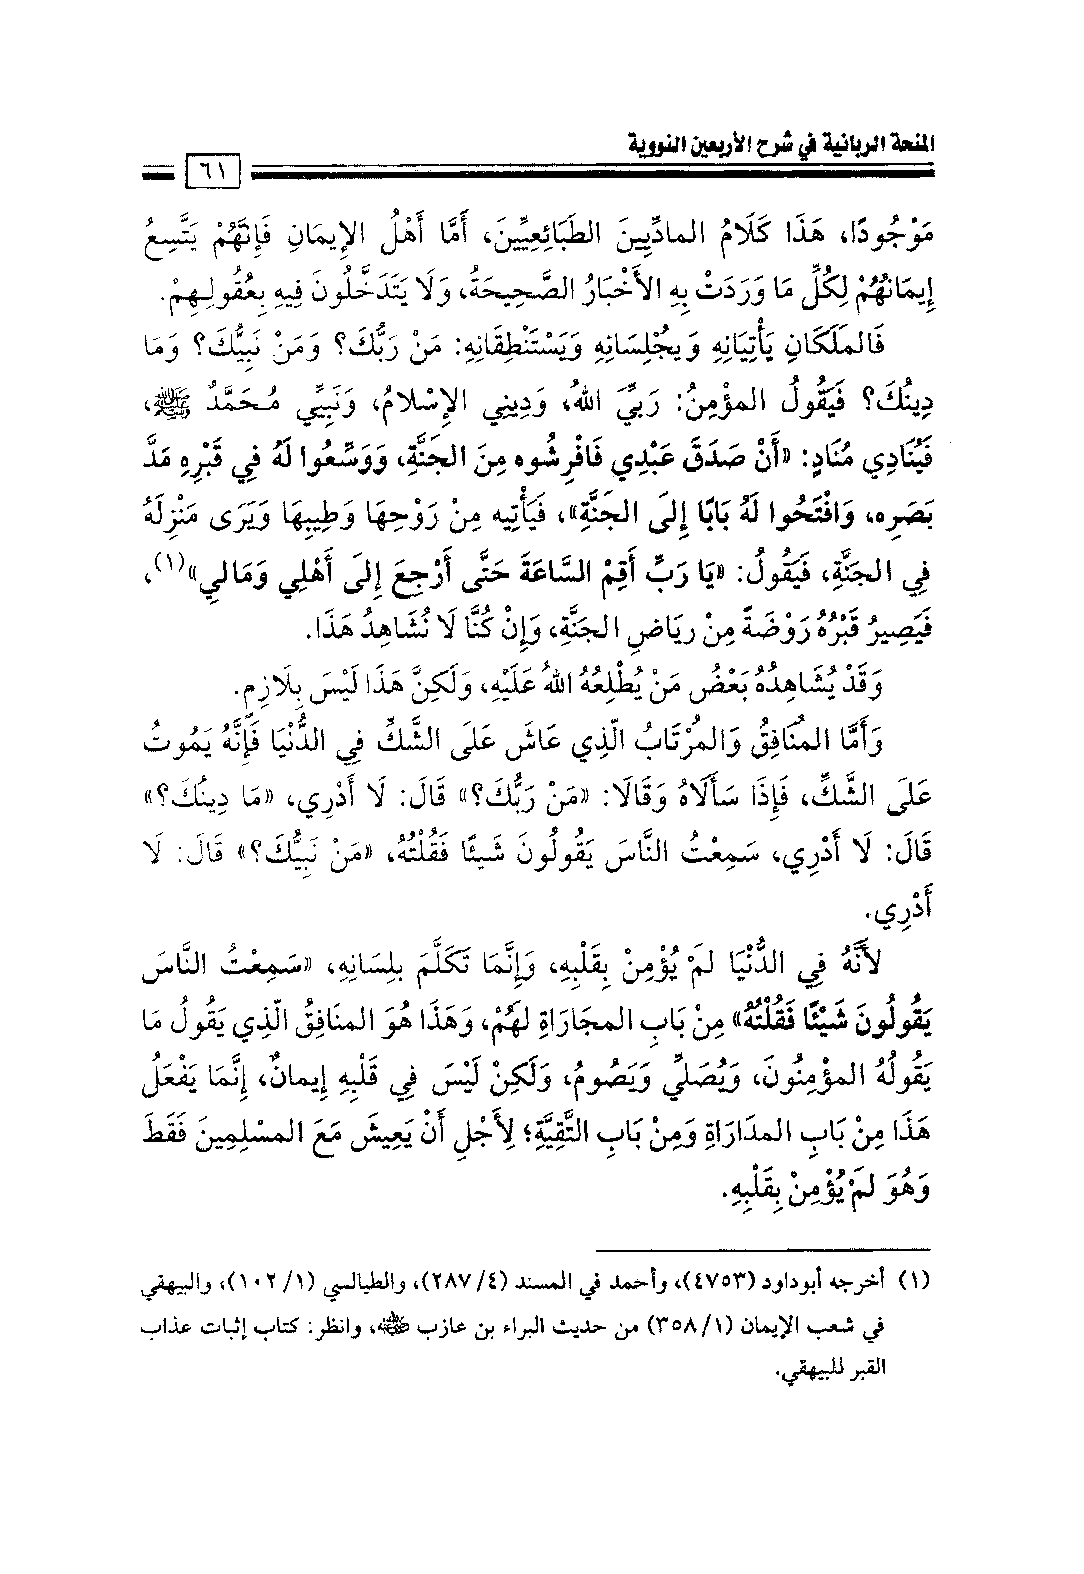 المنحة الربانية في شرح الأربعين النووية
٦١
مَوْجُودًا، هَذَا كَلَامُ المادِّيِّينَ الطَّبَائِعِيِّينَ، أَمَّا أَهْلُ الإِيمَانِ فَإِنَّهُمْ يَتَّسِعُ
إِيمَانُهُمْ لِكُلِّ مَا وَرَدَتْ بِهِ الأَخْبَارُ الصَّحِيحَةُ، وَلَا يَتَدَخَّلُونَ فِيهِ بِعُقُولِهِمْ.
فَالمَلَكَانِ يَأْتِيَانِهِ وَيُجْلِسَانِهِ وَيَسْتَنْطِقَانِهِ: مَنْ رَبُّكَ؟ وَمَنْ نَبِيُّكَ؟ وَمَا
دِينُكَ؟ فَيَقُولُ المؤْمِنُ: رَبِّيَ اللهُ، وَدِينِي الإِسْلامُ، وَنَبِيِّي مُحَمَّدٌ ﷺ،
فَيُنَادِي مُنَادٍ: «أَنْ صَدَقَ عَبْدِي فَافْرِشُوه مِنَ الجَنَّةِ، وَوَسِّعُوا لَهُ فِي قَبْرِهِ مَدَّ
بَصَرِه، وَافْتَحُوا لَهُ بَابًا إِلَى الجَنَّةِ»، فَيَأْتِيه مِنْ رَوْحِهَا وَطِيبِهَا وَيَرَى مَنْزِلَهُ
فِي الجَنَّةِ، فَيَقُولُ: «يَا رَبِّ أَقِمْ السَّاعَةَ حَتَّى أَرْجِعَ إِلَى أَهْلِي وَمَالي»(١)،
فَيَصِيرُ قَبْرُهُ رَوْضَةً مِنْ رِيَاضِ الجَنَّةِ، وَإِنْ كُنَّا لَا نُشَاهِدُ هَذَا.
وَقَدْ يُشَاهِدُهُ بَعْضُ مَنْ يُطْلِعُهُ اللهُ عَلَيْهِ، وَلَكِنَّ هَذَا لَيْسَ بِلَازِمٍ.
وَأَمَّا المُنَافِقُ وَالمُرْتَابُ الَّذِي عَاشَ عَلَى الشَّكِّ فِي الدُّنْيَا فَإِنَّهُ يَمُوتُ
عَلَى الشَّكِّ، فَإِذَا سَأَلَاهُ وَقَالَا: «مَنْ رَبُّكَ؟» قَالَ: لَا أَدْرِي، «مَا دِينُكَ؟»
قَالَ: لَا أَدْرِي، سَمِعْتُ النَّاسَ يَقُولُونَ شَيئًا فَقُلْتُهُ، «مَنْ نَبِيُّكَ؟» قَالَ: لَا
أَدْرِي.
لأَنَّهُ فِي الدُّنْيَا لَمْ يُؤْمِنْ بِقَلْبِهِ، وَإِنَّمَا تَكَلَّمَ بِلِسَانِهِ، «سَمِعْتُ النَّاسَ
يَقُولُونَ شَيْئًا فَقُلْتُهُ» مِنْ بَابِ المجَارَاةِ لهُمْ، وَهَذَا هُوَ المنَافِقُ الَّذِي يَقُولُ مَا
يَقُولُهُ المؤْمِنُونَ، وَيُصَلِّي وَيَصُومُ، وَلَكِنْ لَيْسَ فِي قَلْبِهِ إِيمَانٌ، إِنَّمَا يَفْعَلُ
هَذَا مِنْ بَابِ المدَارَاةِ وَمِنْ بَابِ التَّقِيَّةِ؛ لِأَجْلِ أَنْ يَعِيشَ مَعَ المسْلِمِينَ فَقَطَ
وَهُوَ لَمْ يُؤْمِنْ بِقَلْبِهِ.
(١) أخرجه أبوداود (٤٧٥٣)، وأحمد في المسند (٤/ ٢٨٧)، والطيالسي (١/ ١٠٢)، والبيهقي
في شعب الإيمان (١/ ٣٥٨) من حديث البراء بن عازب ﵁، وانظر: كتاب إثبات عذاب
القبر للبيهقي.